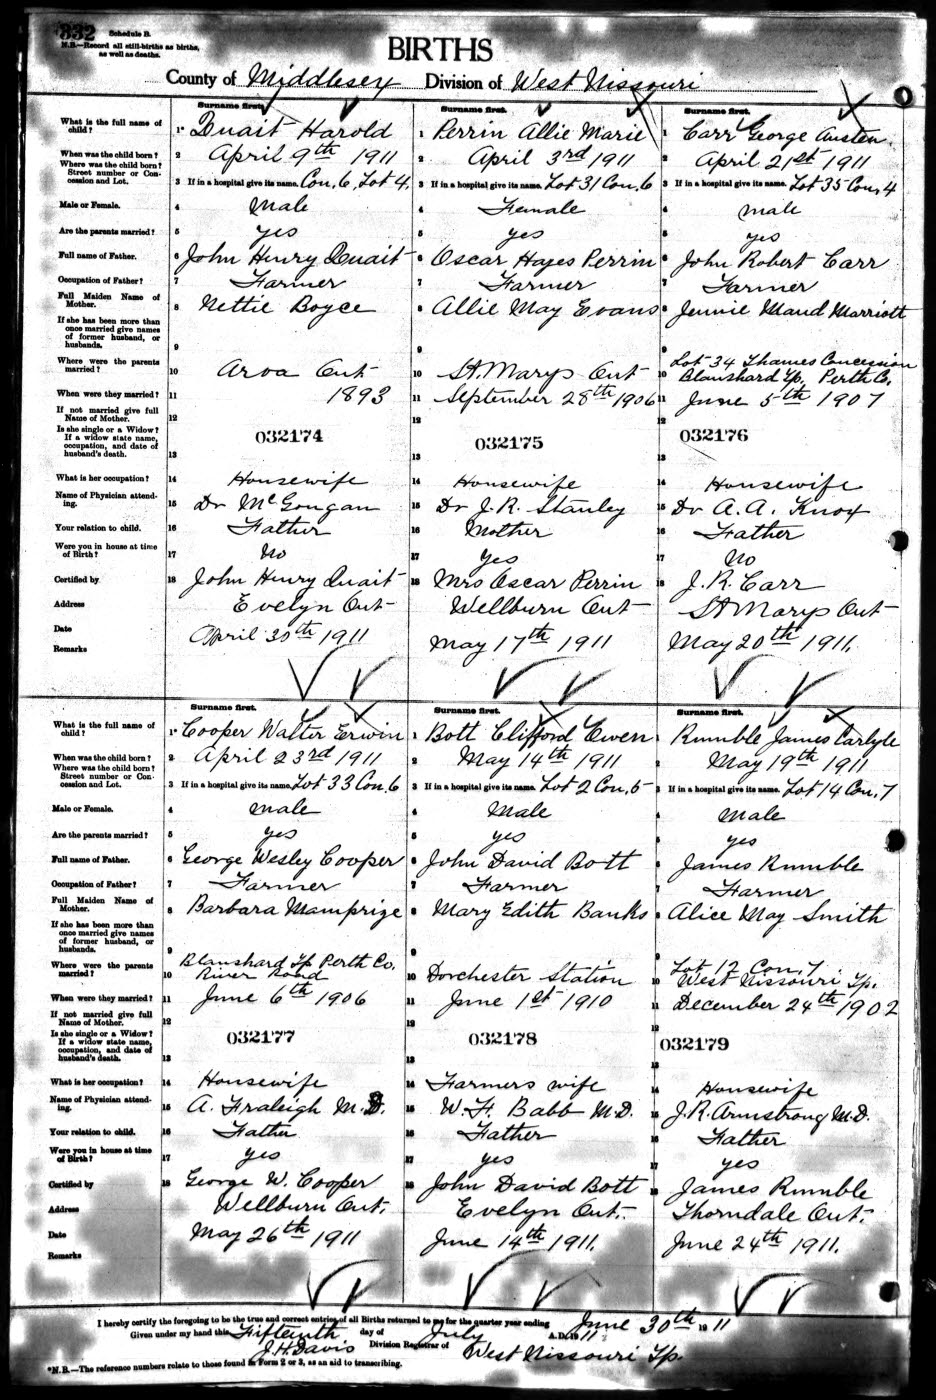 332
Schedule B.
N.B.—Record all still-births as births,
as well as deaths.
BIRTHS
County of Middlesex Division of West Nissouri
Surname first. Surname first. Surname first.
What is the full name of child? 1* Quait Harold 1 Perrin Allie Marie 1 Carr George Austen.
When was the child born? 2 April 9th 1911 2 April 3rd 1911 2 April 21st 1911
Where was the child born? Street number or Concession and Lot. 3 If in a hospital give its name. Con. 6, Lot 4. 3 If in a hospital give its name. Lot 31 Con. 6 3 If in a hospital give its name. Lot 35 Con. 4
Male or Female. 4 Male 4 Female 4 male
Are the parents married? 5 yes 5 yes 5 yes
Full name of Father. 6 John Henry Quait 6 Oscar Hayes Perrin 6 John Robert Carr
Occupation of Father? 7 Farmer 7 Farmer 7 Farmer
Full Maiden Name of Mother. 8 Nettie Boyce 8 Allie May Evans 8 Jennie Maud Marriott
If she has been more than once married give names of former husband, or husbands. 9 9 9
Where were the parents married? 10 Arva Ont 10 St. Marys Ont 10 Lot 34 Thames Concession Blanshard Tp. Perth Co.
When were they married? 11 1893 11 September 28th 1906 11 June 5th 1907
If not married give full Name of Mother. 12 12 12
Is she single or a Widow? If a widow state name, occupation, and date of husband's death. 13 032174 13 032175 13 032176
What is her occupation? 14 Housewife 14 Housewife 14 Housewife
Name of Physician attending. 15 Dr McGougan 15 Dr J.R. Stanley 15 Dr A.A. Knox
Your relation to child. 16 Father 16 Mother 16 Father
Were you in house at time of Birth? 17 No 17 yes 17 No
Certified by 18 John Henry Quait 18 Mrs Oscar Perrin 18 J.R. Carr
Address Evelyn Ont Wellburn Ont St Marys Ont
Date April 30th 1911 May 17th 1911 May 20th 1911.
Remarks
Surname first. Surname first. Surname first.
What is the full name of child? 1* Cooper Walter Erwin 1 Bott Clifford Owen 1 Rumble James Carlyle
When was the child born? 2 April 23rd 1911 2 May 14th 1911 2 May 19th 1911
Where was the child born? Street number or Concession and Lot. 3 If in a hospital give its name. Lot 33 Con. 6 3 If in a hospital give its name. Lot 2 Con. 5 3 If in a hospital give its name. Lot 14 Con. 7
Male or Female. 4 male 4 Male 4 Male
Are the parents married? 5 yes 5 yes 5 yes
Full name of Father. 6 George Wesley Cooper 6 John David Bott 6 James Rumble
Occupation of Father? 7 Farmer 7 Farmer 7 Farmer
Full Maiden Name of Mother. 8 Barbara Mamprize 8 Mary Edith Banks 8 Alice May Smith
If she has been more than once married give names of former husband, or husbands. 9 9 9
Where were the parents married? 10 Blanshard Tp Perth Co. River Road 10 Dorchester Station 10 Lot 12 Con. 7 West Nissouri Tp.
When were they married? 11 June 6th 1906 11 June 1st 1910 11 December 24th 1902
If not married give full Name of Mother. 12 12 12
Is she single or a Widow? If a widow state name, occupation, and date of husband's death. 13 032177 13 032178 13 032179
What is her occupation? 14 Housewife 14 Farmers wife 14 Housewife
Name of Physician attending. 15 A. Fraleigh M.D. 15 W.F. Babb M.D. 15 J.R. Armstrong M.D.
Your relation to child. 16 Father 16 Father 16 Father
Were you in house at time of Birth? 17 yes 17 yes 17 yes
Certified by 18 George W. Cooper 18 John David Bott 18 James Rumble
Address Wellburn Ont. Evelyn Ont. Thorndale Ont.
Date May 26th 1911 June 14th 1911. June 24th 1911.
Remarks
I hereby certify the foregoing to be the true and correct entries of all Births returned to me for the quarter year ending June 30th 1911
Given under my hand this Fifteenth day of July A.D. 1911
J.H. Davis Division Registrar of West Nissouri Tp.
*N.B.—The reference numbers relate to those found in Form 2 or 3, as an aid to transcribing.